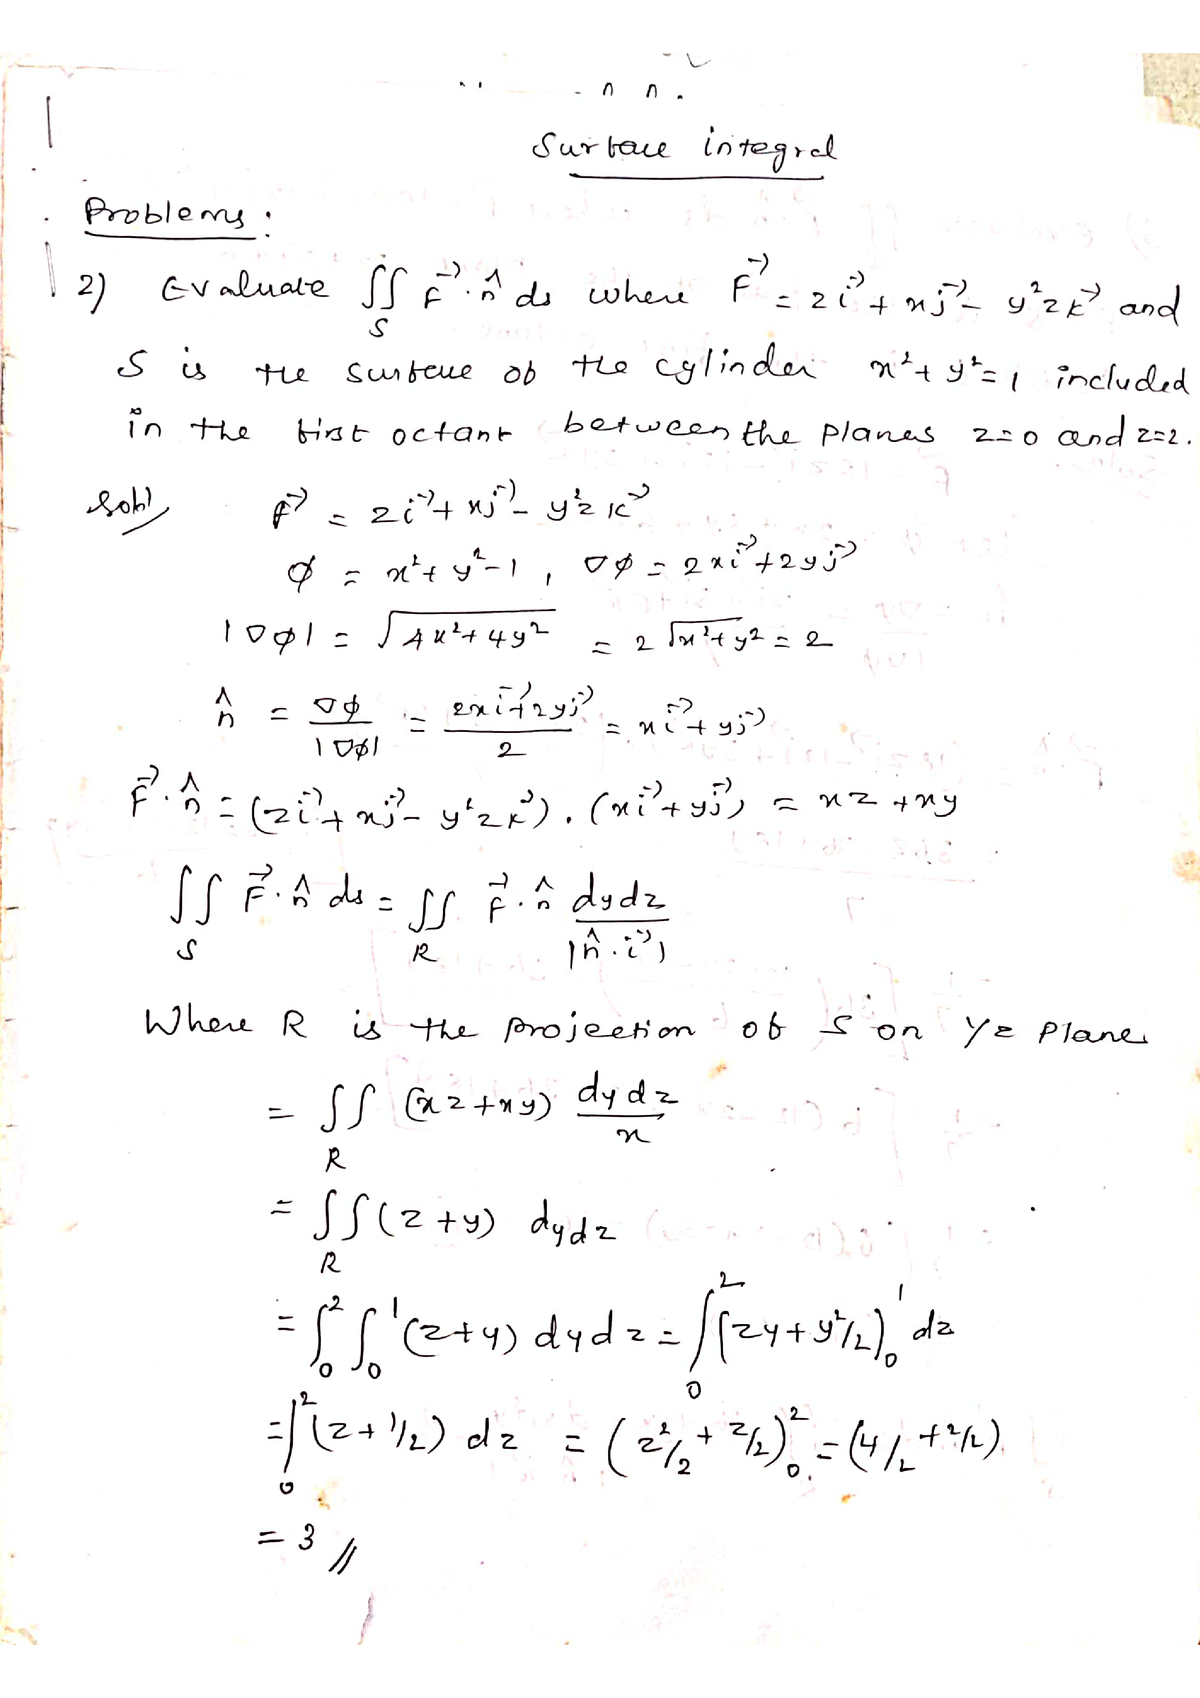 Surface integral
Problems :
2) Evaluate ∬_S F⃗ . n̂ ds where F⃗ = z i⃗ + x j⃗ - y² z k⃗ and
S is the surface of the cylinder x² + y² = 1 included
in the first octant between the planes z=0 and z=2.
Soln F⃗ = z i⃗ + x j⃗ - y² z k⃗
φ = x² + y² - 1 , ∇φ = 2x i⃗ + 2y j⃗
|∇φ| = √(4x² + 4y²) = 2 √(x² + y²) = 2
n̂ = ∇φ / |∇φ| = (2x i⃗ + 2y j⃗) / 2 = x i⃗ + y j⃗
F⃗ . n̂ = (z i⃗ + x j⃗ - y² z k⃗) . (x i⃗ + y j⃗) = xz + xy
∬_S F⃗ . n̂ ds = ∬_R F⃗ . n̂ dydz / |n̂ . i⃗|
Where R is the projection of S on yz plane
= ∬_R (xz + xy) dydz / x
= ∬_R (z + y) dydz
= ∫₀² ∫₀¹ (z + y) dydz = ∫₀² (zy + y²/2)₀¹ dz
= ∫₀² (z + 1/2) dz = (z²/2 + z/2)₀² = (4/2 + 2/2)
= 3 //